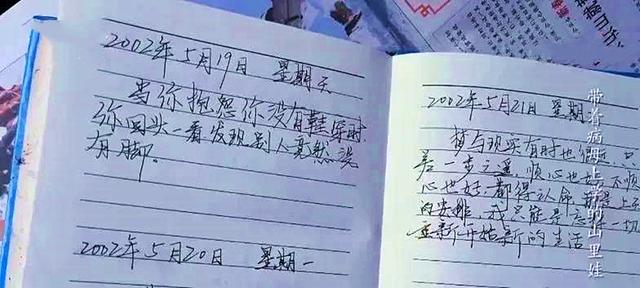 2002年5月19日 星期天
当你抱怨你没有鞋穿时,
你回头一看发现别人竟然没
有脚.
2002年5月20日 星期一
2002年5月21日 星期
梦与现实有时也
差一步之遥 顺心也好 不顺
心也好 都得认命 上天
的安排 我只能 一切
重新开始新的生活
带着病
山里娃